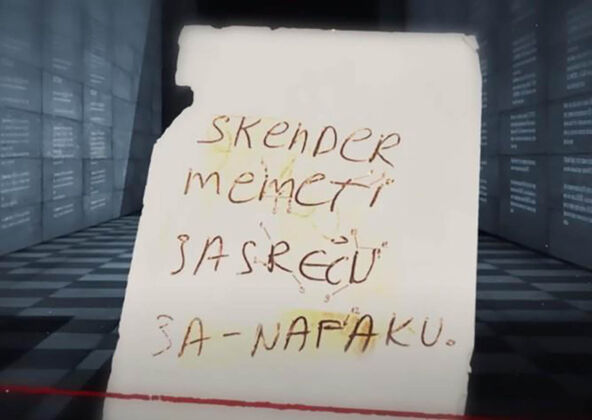 SKENDER
MEMETI
ЗASREČU
ЗA-NAFAKU.